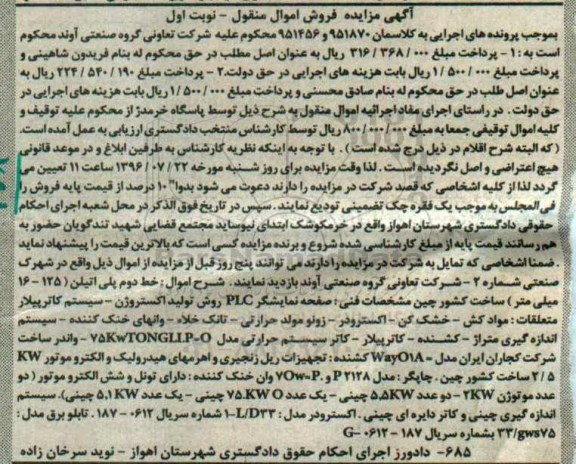 آگهی مزایده فروش اموال منقول - نوبت اول
بموجب پرونده های اجرایی به کلاسمان ۹۵۱۸۷۰ و ۹۵۱۴۵۶ محکوم علیه شرکت تعاونی گروه صنعتی آوند محکوم
است به : ۱ - پرداخت مبلغ ۰۰۰ / ۳۶۸ / ۳۱۶ ریال به عنوان اصل مطلب در حق محکوم له بنام فریدون شاهینی و
پرداخت مبلغ ۰۰۰ / ۵۰۰ / ۱ ریال بابت هزینه های اجرایی در حق دولت. ۲ - پرداخت مبلغ ۱۹۰ / ۵۴۰ / ۲۲۴ ریال به
عنوان اصل طلب در حق محکوم له بنام صادق محسنی و پرداخت مبلغ ۰۰۰ / ۵۰۰ / ۱ ریال بابت هزینه های اجرایی در
حق دولت . در راستای اجرای مفاد اجرائیه اموال منقول به شرح ذیل توسط پاسگاه خرمدژ از محکوم علیه توقیف و
کلیه اموال توقیفی جمعا به مبلغ ۰۰۰ / ۰۰۰ / ۸۰۰ ریال توسط کارشناس منتخب دادگستری ارزیابی به عمل آمده است.
( که البته شرح اقلام در ذیل درج شده است ) . با توجه به اینکه نظریه کارشناس به طرفین ابلاغ و در موعد قانونی
هیچ اعتراضی و اصل نگردیده است . لذا وقت مزایده برای روز شنبه مورخه ۲۲ / ۰۷ / ۱۳۹۶ ساعت ۱۱ تعیین می
گردد لذا از کلیه اشخاصی که قصد شرکت در مزایده را دارند دعوت می شود بدوا" ۱۰ درصد از قیمت پایه فروش را
فی المجلس به موجب یک فقره چک تضمینی تودیع نمایند . سپس در تاریخ فوق الذکر در محل شعبه اجرای احکام
حقوقی دادگستری شهرستان اهواز واقع در خرمکوشک ابتدای نیوساید مجتمع قضایی شهید تندگویان حضور به
هم رسانند قیمت پایه از مبلغ کارشناسی شده شروع و برنده مزایده کسی است که بالاترین قیمت را پیشنهاد نماید
. ضمنا اشخاصی که تمایل به شرکت در مزایده را دارند می توانند پنج روز قبل از مزایده از اموال ذیل واقع در شهرک
صنعتی شماره ۲ - شرکت تعاونی گروه صنعتی آوند بازدید نمایند . شرح اموال : خط دوم پلی اتیلن ( ۱۲۵ - ۱۶
میلی متر ) ساخت کشور چین مشخصات فنی : صفحه نمایشگر PLC روش تولید اکستروژن - سیستم کاتر پیلار
متعلقات : مواد کش - خشک کن - اکسترودر - زونو مولد حرارتی - تانک خلاء - وانهای خنک کننده - سیستم
اندازه گیری متراژ - کشنده - کاترپیلار - کاتر سیستم حرارتی مدل ۷۵KwTONGLLP=O - واندر ساخت
شرکت کجاران ایران مدل = WayO۱A کشنده : تجهیزات ریل زنجیری و اهرمهای هیدرولیک و الکترو موتور KW
۲ / ۵ ساخت کشور چین . چاپگر : مدل P ۲۱۲۸ و ۷Ow-P. وان خنک کننده : دارای تونل و شش الکترو موتور ( دو
عدد موتوژن ۲KW - دو عدد ۵٫۵KW چینی - یک عدد ۷۵.KW O چینی - یک عدد ۵٫۱KW چینی). سیستم
اندازه گیری چینی و کاتر دایره ای چینی . اکسترودر مدل : L/D۳۳-۱ شماره سریال ۰۶۱۲ - ۱۸۷ . تابلو برق مدل :
۳۳/gws۷۵ بشماره سریال ۱۸۷ - ۰۶۱۲ -G
۶۸۵- دادورز اجرای احکام حقوق دادگستری شهرستان اهواز - نوید سرخان زاده